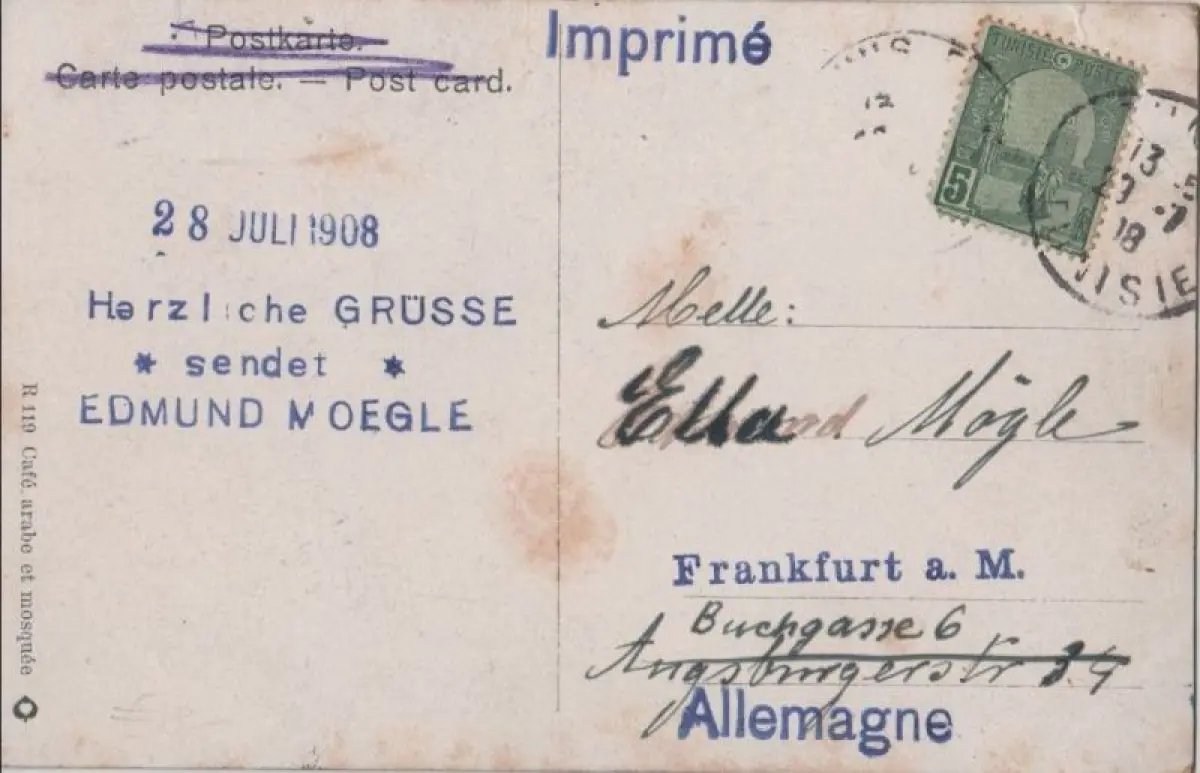 Postkarte.
Carte postale. — Post card.
Imprimé
TUNISIE POSTES
5
13
29 -7
ISIE
28 JULI 1908
Herzliche GRÜSSE
* sendet *
EDMUND MOEGLE
Melle:
Ella Mögle
Frankfurt a. M.
Buchgasse 6
Augsburgerstr 34
Allemagne
R 119 Café arabe et mosquée